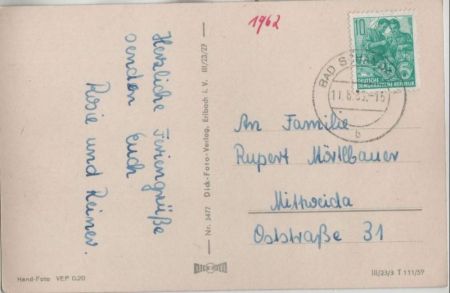 1962
Herzliche Feriengrüße
senden Euch
Rosie und Reiner.
Nr. 3477 Dick-Foto-Verlag, Erlbach i. V. III/23/27
10
DEUTSCHE
DEMOKRATISCHE REPUBLIK
BAD
b
An Familie
Rupert Mörtlbauer
Mittweida
Oststraße 31
Hand-Foto VEP 0.20
III/23/3 T 111/57